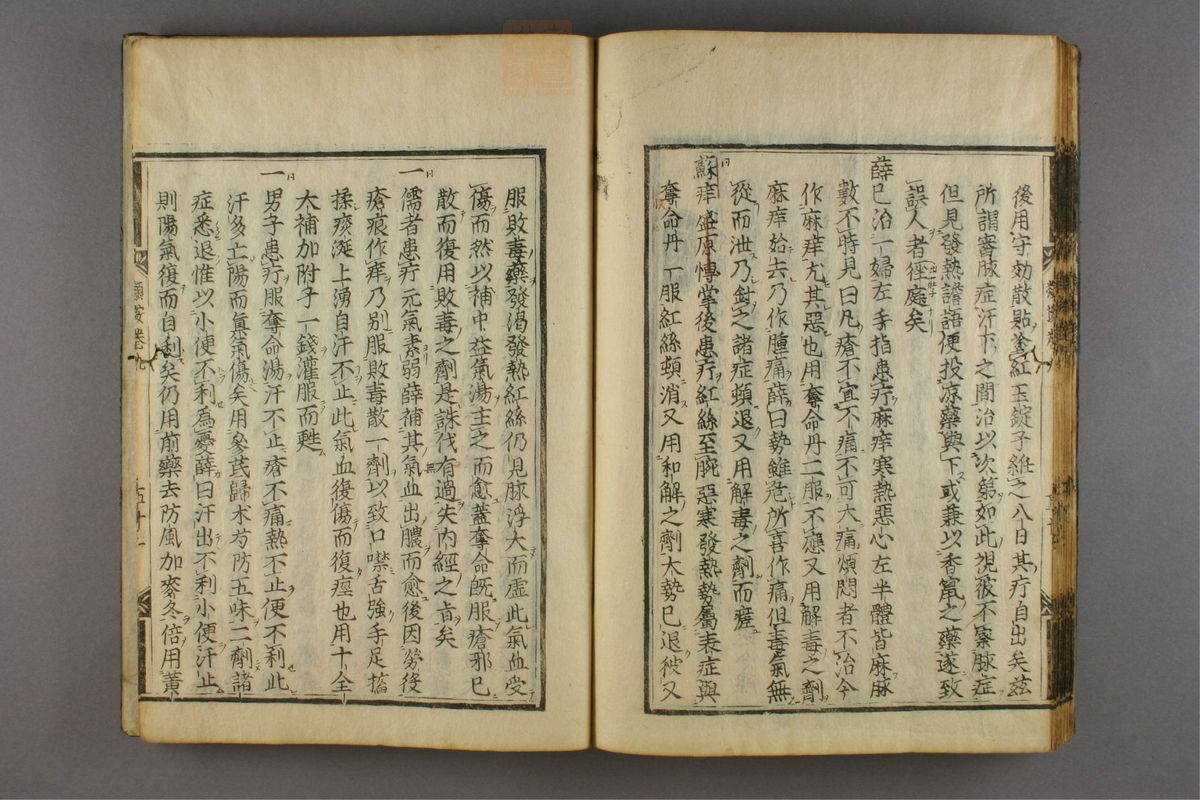 後用守効散貼塗紅玉錠子維之八日其疔自出矣茲
所謂審脉症汗下之間治以次第如此視彼不察脉症
但見發熱譫語便投凉藥與下或兼以香竄之藥遂致
誤人者徑庭矣
薛已治一婦左手指患疔麻痒寒熱惡心左半體皆麻脉
數不時見曰凡瘡不宜不痛不可大痛煩悶者不治今
作麻痒尤其惡也用奪命丹二服不應又用解毒之劑
麻痒始去乃作腫痛薛曰勢雖危所喜作痛但毒氣無
從而泄乃針之諸症頓退又用解毒之劑而瘥
蘇庠盛原博掌後患疔紅絲至腕惡寒發熱勢屬表症與
奪命丹一服紅絲頓消又用和解之劑大勢已退彼又
服敗毒藥發渴發熱紅絲仍見脉浮大而虛此氣血受
傷而然以補中益氣湯主之而愈蓋奪命既服瘡邪已
散而復用敗毒之劑是誅伐有過失內經之旨矣
一儒者患疔元氣素弱薛補其氣血出膿而愈後因勞役
瘡痕作痒乃別服敗毒散一劑以致口噤舌強手足搐
揉痰涎上湧自汗不止此氣血復傷而復痙也用十全
大補加附子一錢灌服而甦
一男子患疔服奪命湯汗不止瘡不痛熱不止便不利此
汗多亡陽而眞氣傷矣用參芪歸术芍防五味二劑諸
症悉退惟以小便不利為憂薛曰汗出不利小便汗止
則陽氣復而自利矣仍用前藥去防風加麥冬倍用黄